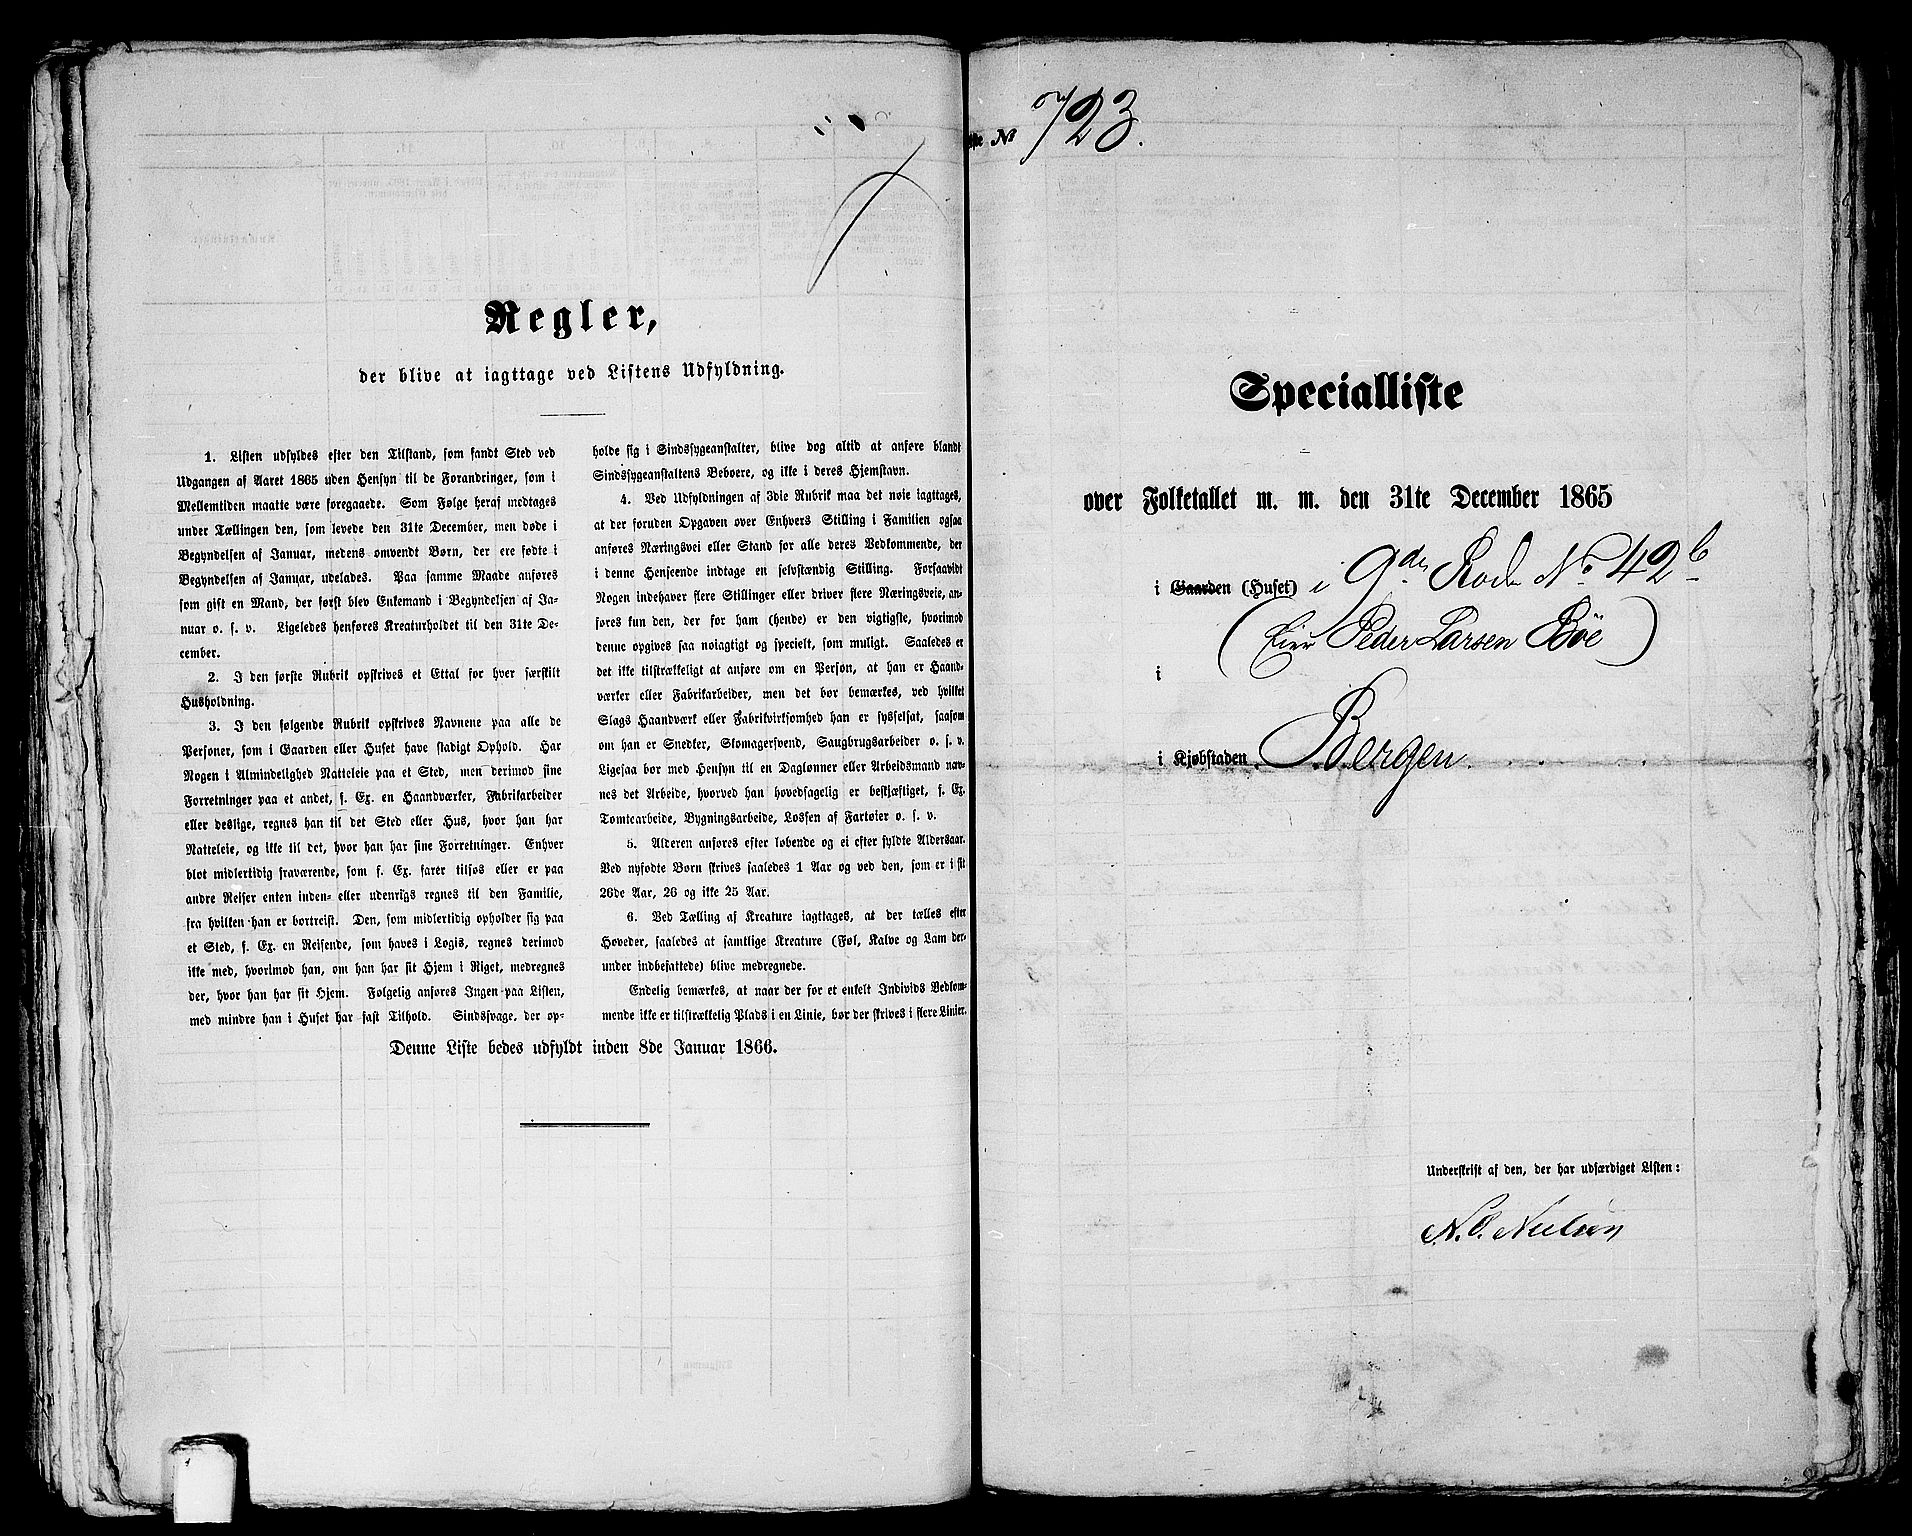 Regler,
der blive at iagttage ved Listens Udfyldning.
1. Listen udfyldes efter den Tilstand, som fandt Sted ved
Udgangen af Aaret 1865 uden Hensyn til de Forandringer, som i
Mellemtiden maatte være foregaaede. Som Følge heraf medtages
under Tællingen den, som levede den 31te December, men døde i
Begyndelsen af Januar, medens omvendt Børn, der ere fødte i
Begyndelsen af Januar, udelades. Paa samme Maade anføres
som gift en Mand, der først blev Enkemand i Begyndelsen af Ja-
nuar o. s. v. Ligeledes henføres Kreaturholdet til den 31te De-
cember.
2. I den første Rubrik opskrives et Ettal for hver særskilt
Husholdning.
3. I den følgende Rubrik opskrives Navnene paa alle de
Personer, som i Gaarden eller Huset have stadigt Ophold. Har
Nogen i Almindelighed Natteleie paa et Sted, men derimod sine
Forretninger paa et andet, f. Ex. en Haandværker, Fabrikarbeider
eller deslige, regnes han til det Sted eller Hus, hvor han har
Natteleie, og ikke til det, hvor han har sine Forretninger. Enhver
blot midlertidig fraværende, som f. Ex. farer tilsøs eller er paa
andre Reiser enten inden- eller udenrigs regnes til den Familie,
fra hvilken han er bortreist. Den, som midlertidig opholder sig paa
et Sted, f. Ex. en Reisende, som haves i Logis, regnes derimod
ikke med, hvorimod han, om han har sit Hjem i Riget, medregnes
der, hvor han har sit Hjem. Følgelig anføres Ingen paa Listen,
med mindre han i Huset har fast Tilhold. Sindssvage, der op-
holde sig i Sindssygeanstalter, blive dog altid at anføre blandt
Sindssygeanstaltens Beboere, og ikke i deres Hjemstavn.
4. Ved Udfyldningen af 3die Rubrik maa det nøie iagttages,
at der foruden Opgaven over Enhvers Stilling i Familien ogsaa
anføres Næringsvei eller Stand for alle deres Vedkommende, der
i denne Henseende indtage en selvstændig Stilling. Forsaavidt
Nogen indehaver flere Stillinger eller driver flere Næringsveie, an-
føres kun den, der for ham (hende) er den vigtigste, hvorimod
denne opgives saa nøiagtigt og specielt, som muligt. Saaledes er
det ikke tilstrækkeligt at anføre om en Person, at han er Haand-
værker eller Fabrikarbeider, men det bør bemærkes, ved hvilket
Slags Haandværk eller Fabrikvirksomhed han er sysselsat, saasom
om han er Snedker, Skomagersvend, Saugbrugsarbeider o. s. v.
Ligesaa bør med Hensyn til en Daglønner eller Arbeidsmand nav-
nes det Arbeide, hvorved han hovedsagelig er beskjæftiget, f. Ex.
Tomtearbeide, Bygningsarbeide, Lossen af Fartøier o. s. v.
5. Alderen anføres efter løbende og ei efter fyldte Aldersaar.
Ved nyfødte Børn skrives saaledes 1 Aar og ved den, som er i sit
26de Aar, 26 og ikke 25 Aar.
6. Ved Tælling af Kreature iagttages, at der tælles efter
Hoveder, saaledes at samtlige Kreature (Føl, Kalve og Lam der-
under indbefattede) blive medregnede.
Endelig bemærkes, at naar der for et enkelt Individs Vedkom-
mende ikke er tilstrækkelig Plads i en Linie, bør der skrives i flere Linier.
Denne Liste bedes udfyldt inden 8de Januar 1866.
ste No 723.
Specialliste
over Folketallet m. m. den 31te December 1865
i Gaarden (Huset) i 9de Rode No 42b
(Eier Peder Larsen Böe)
i
i Kjøbstaden Bergen.
Underskrift af den, der har udfærdiget Listen:
N. C. Nielsen